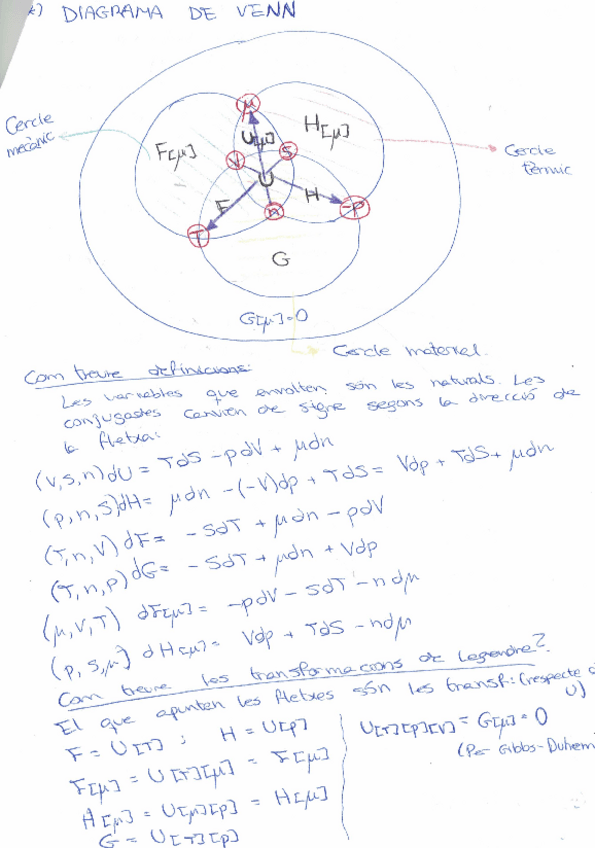 *) DIAGRAMA DE VENN
Cercle
mecànic
μ
F[μ]
U[μ]
H[μ]
V
S
U
Cercle
tèrmic
F
H
T
n
-P
G
G[μ]=0
Cercle material.
Com treure definicions:
Les variables que envolten són les naturals. Les
conjugades canvien de signe segons la direcció de
la fletxa:
(V,S,n) dU = TdS - pdV + μdn
(p,n,S) dH = μdn - (-V)dp + TdS = Vdp + TdS + μdn
(T,n,V) dF = -SdT + μdn - pdV
(T,n,p) dG = -SdT + μdn + Vdp
(μ,V,T) dF[μ] = -pdV - SdT - ndμ
(p,S,μ) dH[μ] = Vdp + TdS - ndμ
Com treure les transformacions de Legendre?
El que apunten les fletxes són les transf: (respecte
U)
F = U[T] ; H = U[p]
F[μ] = U[T][μ] = F[μ]
H[μ] = U[μ][p] = H[μ]
G = U[T][p]
U[T][p][μ] = G[μ] = 0
(Per Gibbs-Duhem